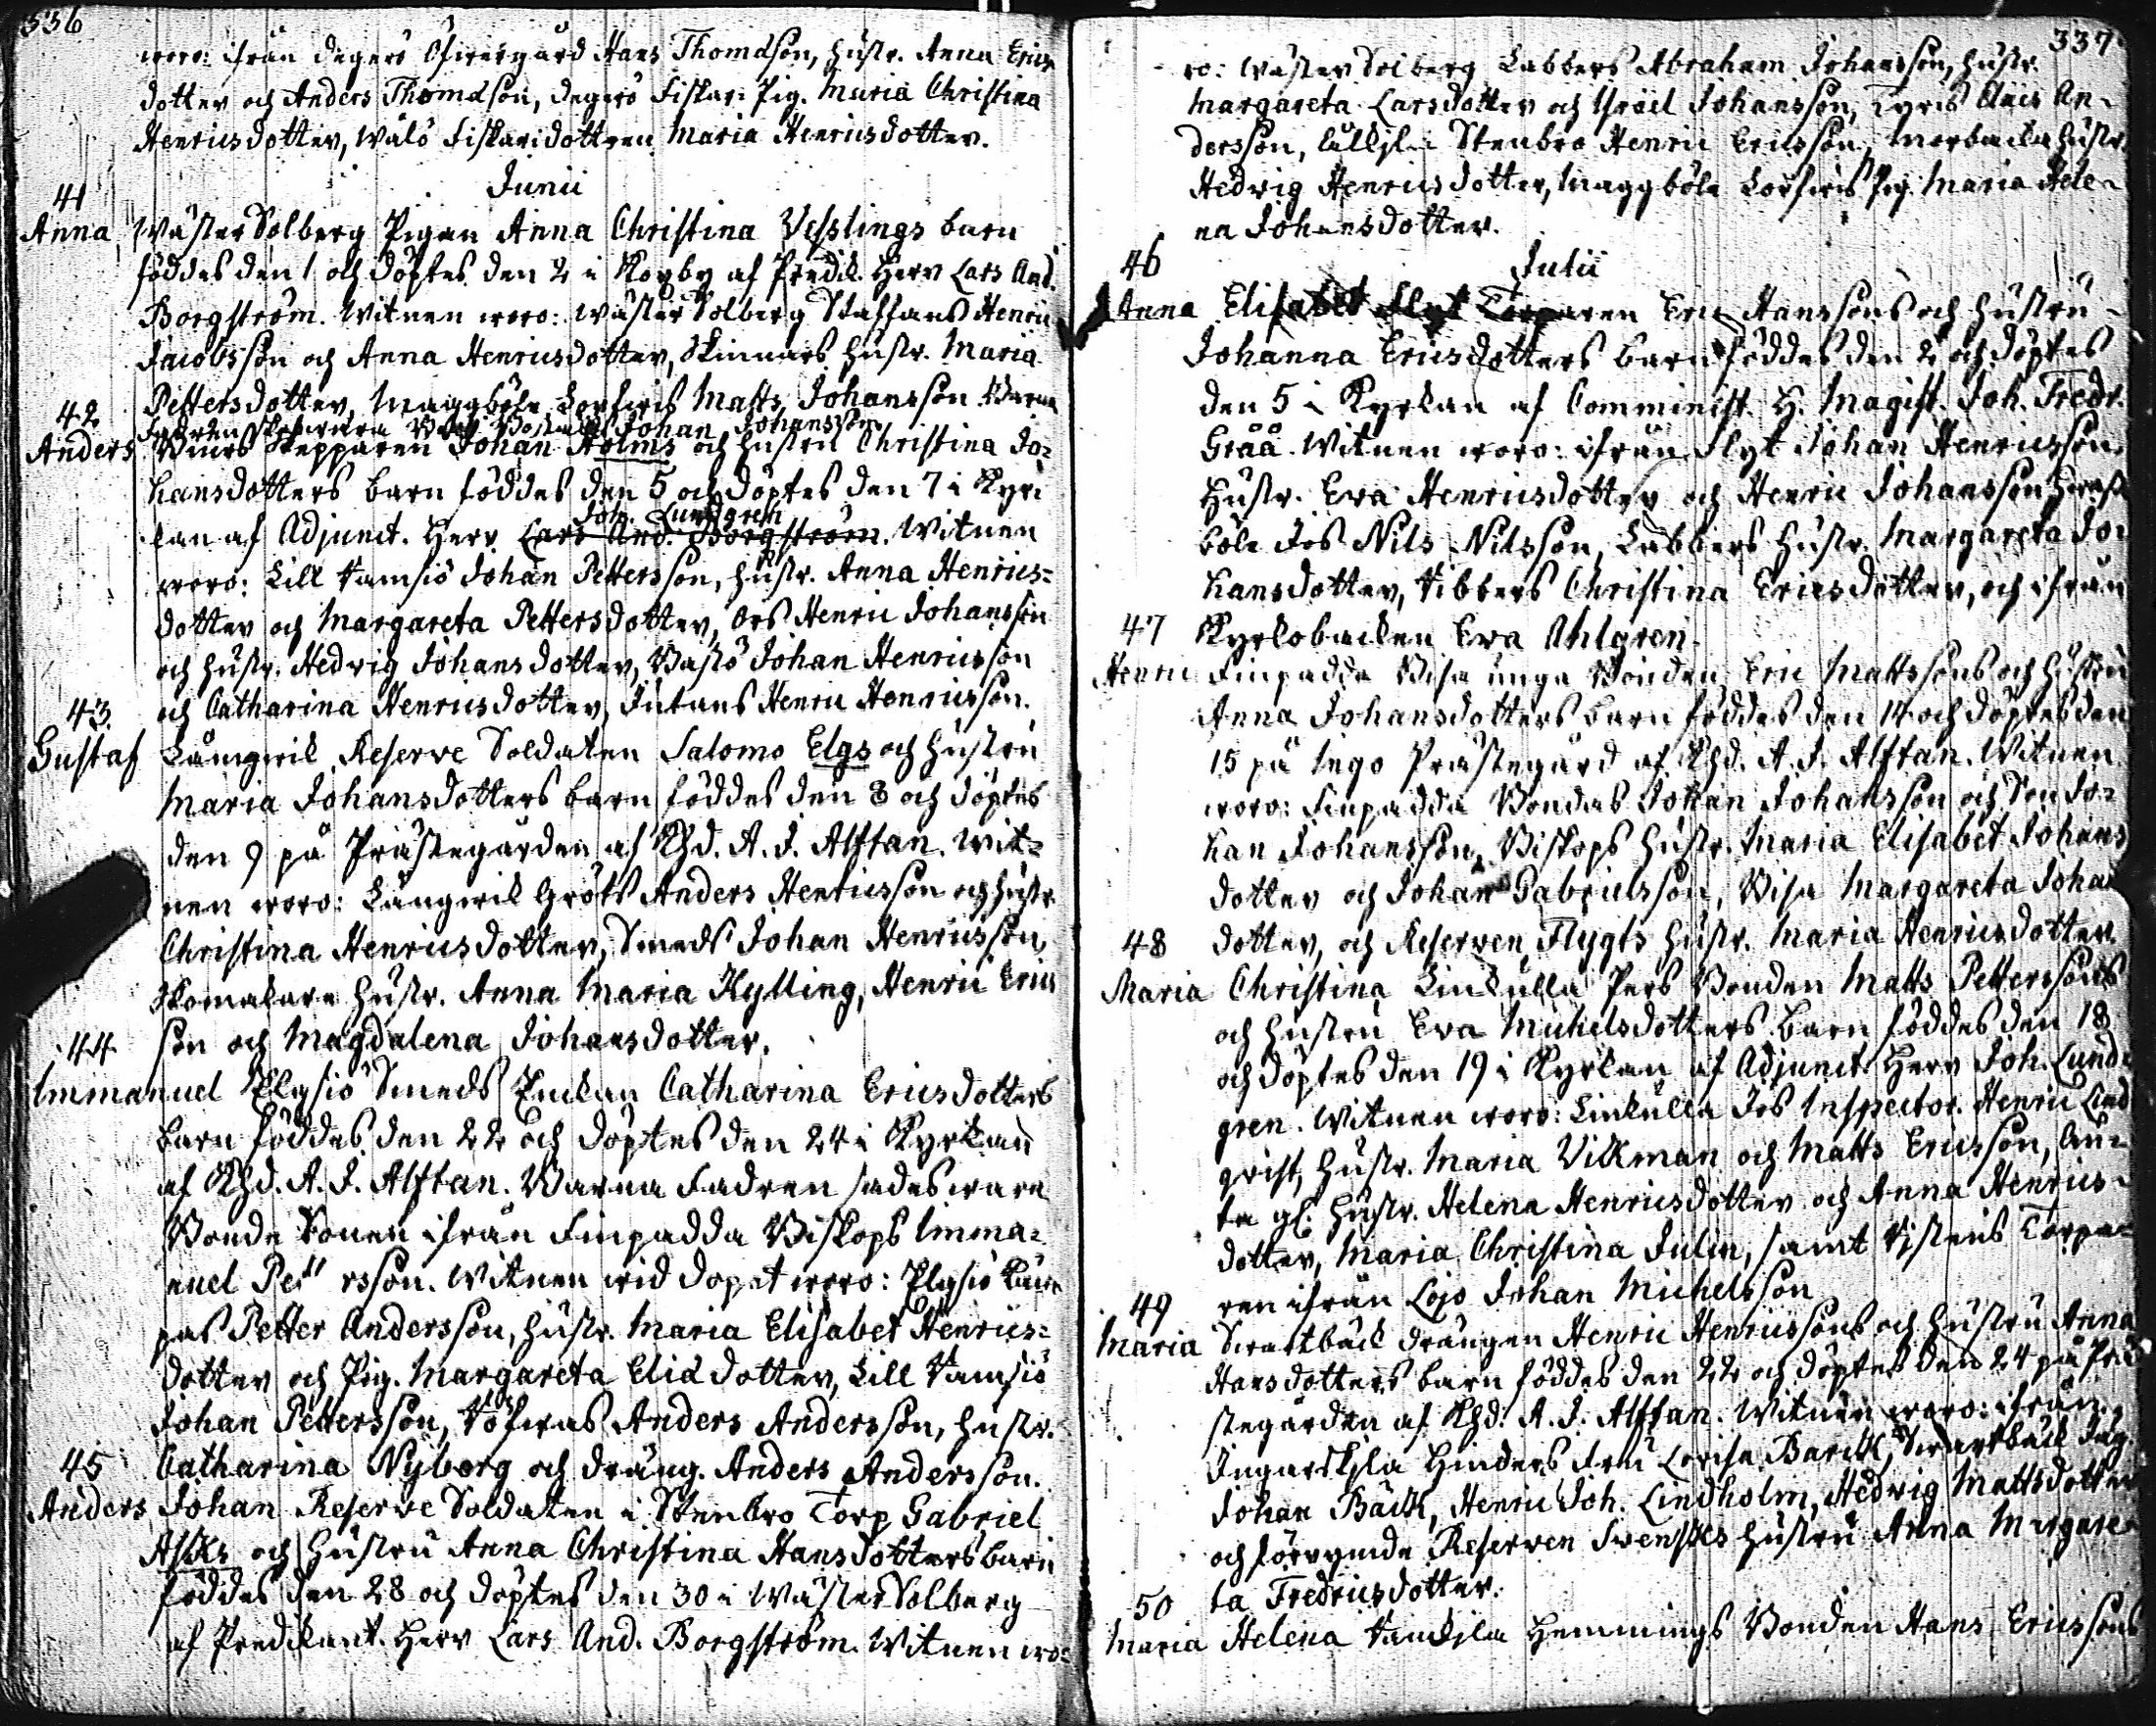 336
woro: ifrån Degerö Öfwergård Hans Thomasson, hustr. Anna Erics
dotter och Anders Thomasson, Degerö Fiskar: Pig. Maria Christina
Henricsdotter, Wålö Fiskaridottren Maria Henricsdotter.
Junii
41
Anna Wäster Solberg Pigan Anna Christina Vesslings barn
föddes den 1 och döptes den 2 i Kopby af Predik. Herr Lars And.
Borgström. Witnen woro: Wäster Solberg Staffans Henric
Jacobsson och Anna Henricsdotter, Skinnars hustr. Maria
Pettersdotter, Maggböle Lorfwis Matts Johansson Barna
Fadren Johan Johansson.
42
Anders Skepparen Johan Holms och hustru Christina Jo=
hansdotters barn föddes den 5 och döptes den 7 i Kyr=
kan af Adjunct. Herr Joh. Lundgren Lars And. Borgström. Witnen
woro: Lill Ramsiö Johan Pettersson, hustr. Anna Henrics=
dotter och Margareta Pettersdotter, Ors Henric Johansson
och hustr. Hedvig Johansdotter, Basö Johan Henricsson
och Catharina Henricsdotter, Jutans Henric Henricsson.
43.
Gustaf Långwik Reserve Soldaten Salomo Elgs och hustru
Maria Johansdotters barn föddes den 8 och döptes
den 9 på Prästegården af Khd. A. J. Alftan. Wit=
nen woro: Långwik Gröts Anders Henricsson och hustr
Christina Henricsdotter, Smeds Johan Henricsson,
Skomakare hustr. Anna Maria Kylling, Henric Erics
son och Magdalena Johansdotter.
44
Immanuel Elgsiö Smeds Enkan Catharina Ericsdotters
barn föddes den 22 och döptes den 24 i Kyrkan
af Khd. A. J. Alftan. Barna Fadren sades ware
Bonde Sonen ifrån Finpadda Biskops Imma=
nuel Pettersson. Witnen wid dopet woro: Elgsiö
Petter Andersson, hustr. Maria Elisabet Henrics=
dotter och Pig. Margareta Eliædotter, Lill Ramsiö
Johan Pettersson, Töfwas Anders Andersson, hustr.
Catharina Nyborg och dräng. Anders Andersson.
45
Anders Johan Reserve Soldaten i Stenbro Torp Gabriel
Asks och hustru Anna Christina Hansdotters barn
föddes den 28 och döptes den 30 i Wäster Solberg
af Predikant. Herr Lars And. Borgström. Witnen wo=
337
ro: Wäster Solberg Labbers Abraham Johansson, hustr.
Margareta Larsdotter och Israel Johansson, Tyris Claes An=
dersson, Stenbro Henric Ericsson, Morbacka hustr
Hedvig Henricsdotter, Maggböle Lorfwis Pig. Maria Hele=
na Johansdotter.
Julii
46
Anna Elisabet Flyt Torparen Eric Hanssons och hustru
Johanna Ericsdotters barn föddes den 2 och döptes
den 5 i Kyrkan af Comminist. H. Magist. Joh. Fredr.
Gråå. Witnen woro: ifrån Flyt Johan Henricsson,
hustr. Eva Henricsdotter och Henric Johansson
böle Jos Nils Nilsson, Labbers hustr. Margareta Jo=
hansdotter, Ribbers Christina Ericsdotter, och ifrån
Kyrkobacken Eva Ahlgren.
47
Henric Finpadda Bisa unga Bonden Eric Mattssons och hustru
Anna Johansdotters barn föddes den 14 och döptes den
15 på Ingo Prästegård af Khd. A. J. Alftan. Witnen
woro: Finpadda Bondas Johan Johansson och Son Jo=
han Johansson, Biskops hustr. Maria Elisabet Johans
dotter och Johan Gabrielsson, Bisa Margareta Johans
dotter, och Reserven Flygts hustr. Maria Henricsdotter.
48
Maria Christina Linkulla Pers Bonden Matts Petterssons
och hustru Eva Michelsdotters barn föddes den 18
och döptes den 19 i Kyrkan af Adjunct. Herr Joh. Lund=
gren. Witnen woro: Linkulla Jos Inspector. Henric Lind
qvist, hustr. Maria Vikman och Matts Ericsson,
hustr. Helena Henricsdotter och Anna Henrics=
dotter, Maria Christina Julin, samt Torpa=
ren ifrån Lojo Johan Michelsson
49
Maria Swartbäck drängen Henric Henricssons och hustru Anna
Hansdotters barn föddes den 22 och döptes den 24 på Prä
stegården af Khd. A. J. Alftan. Witnen woro: ifrån
Ingarskila Hinders Fru Lovisa Barck, Swartbäck
Johan Bäck, Henric Joh. Lindholm, Hedvig Mattsdotter
och förrymde Reserven Svenskes hustru Anna Margare=
ta Fredricsdotter.
50
Maria Helena Hemmings Bonden Hans Ericssons